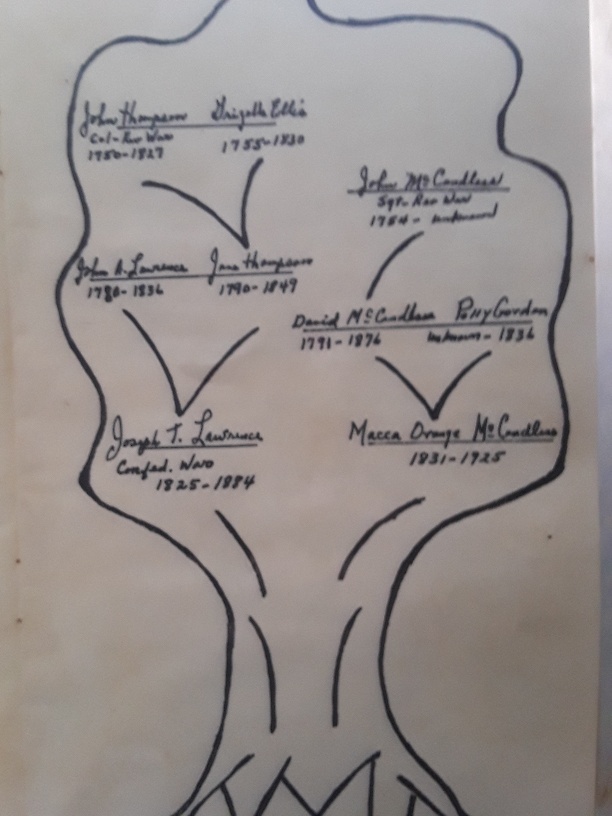 John Thompson Grizelle Ellis
Col-Rev War
1750-1827 1755-1830
John McCandless
Sgt-Rev War
1754- unknown
John A. Lawrence Jane Thompson
1780-1836 1790-1847
David McCandless Polly Gordon
1791-1876 unknown-1836
Joseph T. Lawrence
Confed. War
1825-1884
Macca Orange McCandless
1831-1925